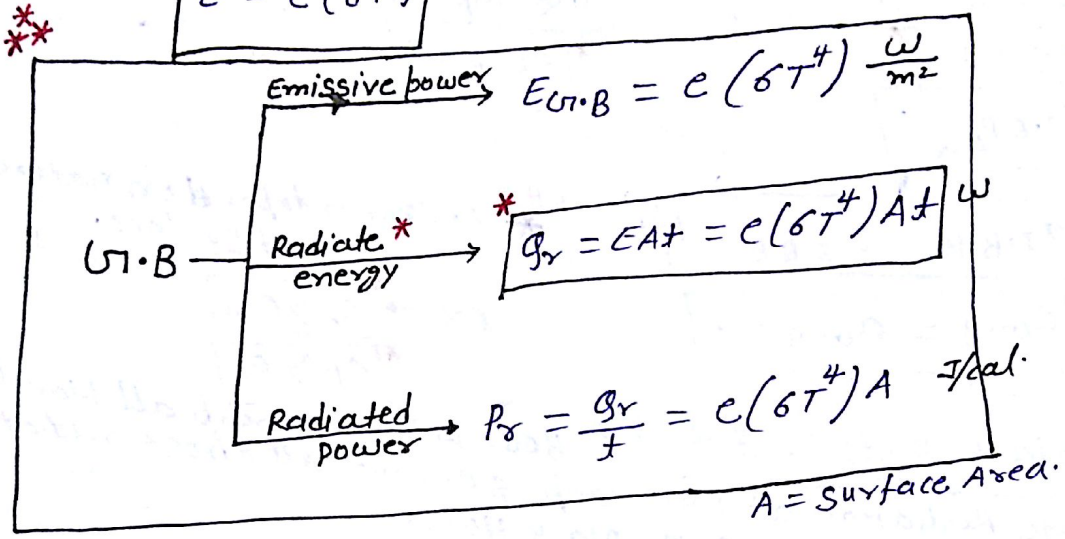 ***
Emissive power E_G.B = e (σT⁴) W/m²
G.B
Radiate * energy * Qr = EAt = e(σT⁴)At W
Radiated power Pr = Qr/t = e(σT⁴)A J/cal.
A = Surface Area.